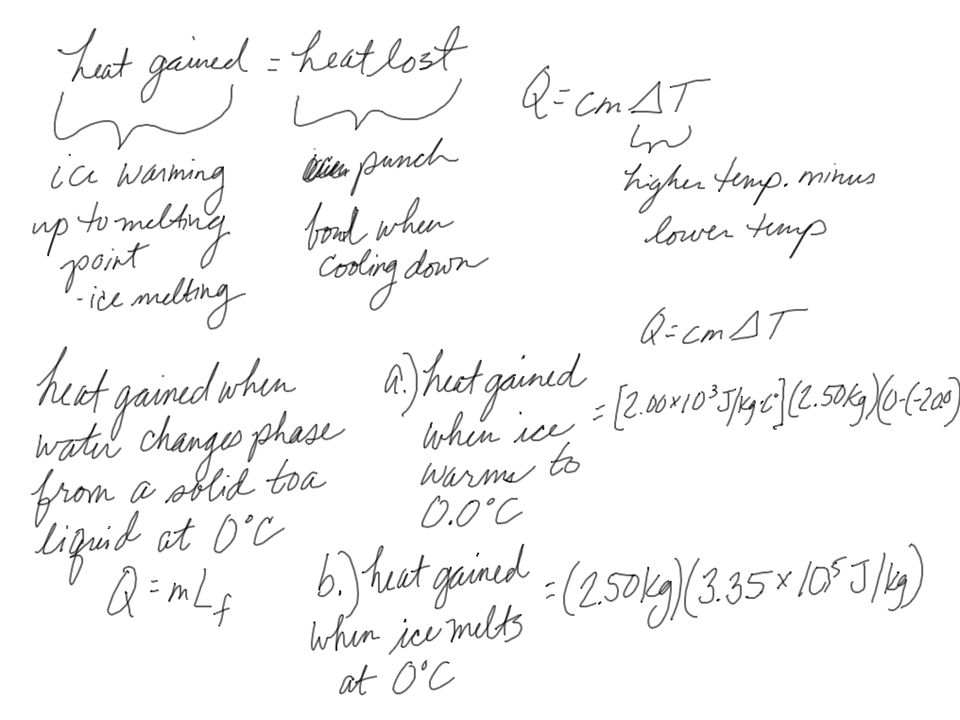 heat gained = heat lost
Q = cm ΔT
higher temp. minus
lower temp
ice warming
up to melting
point
- ice melting
punch
bowl when
cooling down
Q = cm ΔT
heat gained when
water changes phase
from a solid to a
liquid at 0°C
Q = mL_f
a.) heat gained
when ice
warms to
0.0°C
= [2.00×10³ J/kg·C°](2.50kg)(0-(-20.0)
b.) heat gained
when ice melts
at 0°C
= (2.50kg)(3.35×10⁵ J/kg)